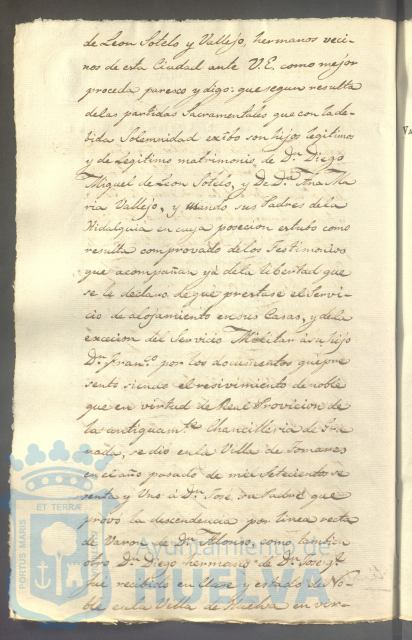 de Leon Sotelo y Vallejo, hermanos veci-
nos de esta Ciudad ante V.E. como mejor
proceda paresco y digo: que segun resulta
delas partidas Sacramentales que con la de-
bida Solemnidad exibo son hijos legitimos
y de Legitimo matrimonio de Dn. Diego
Miguel de Leon Sotelo, y De Da. Ana Ma
ria Vallejo, y usando sus Padres de la
Hidalguia en cuya posecion estubo como
resulta comprovado de los Testimonios
que acompañan ya dela libertad que
se le declaro de que prestase el Servi-
cio de alojamiento en sus Casas, y dela
execion del Servicio Militar à su hijo
Dn. Franco. por los documentos que pre
sento siendo el resivimiento de noble
que en virtud de Real Provicion de
la antiguamte. Chancilleria de Gra
nada, se dio en la Villa de Tomares
en el año pasado de mil Setecientos se
senta y Uno à Dn. José su Padre que
provo la descendencia por linea recta
de Varon de Dn. Alonso, como tambien
otro Dn. Diego hermano de Dn. Jose qe.
fue recibido en Clase y estado de No-
ble en la Villa de Huelva en vir-
PORTUS MARIS
ET TERRÆ
Ayuntamiento de
HUELVA